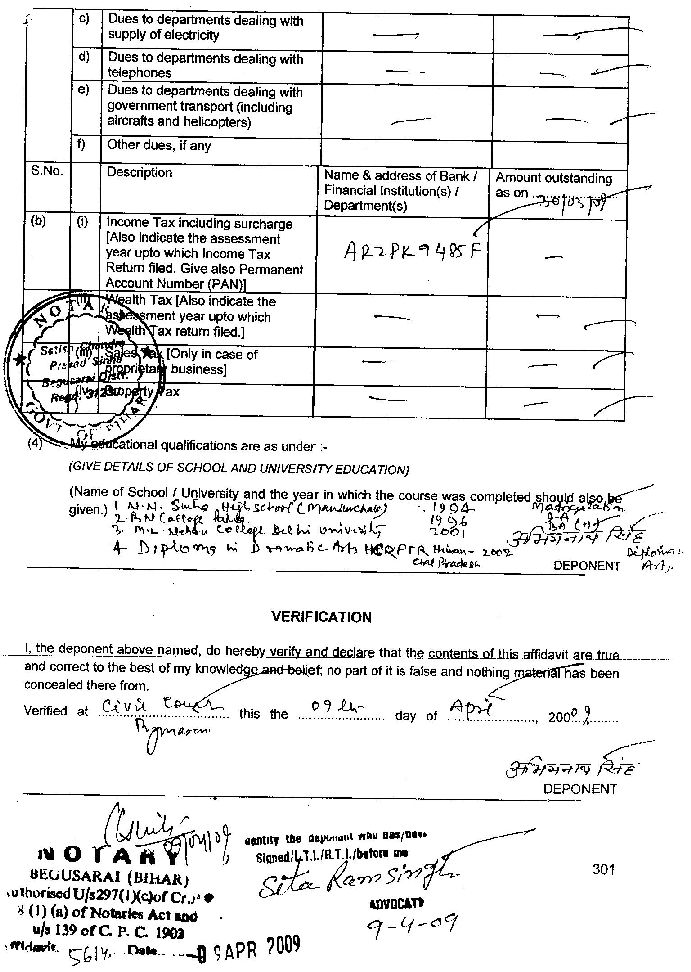 c) Dues to departments dealing with
supply of electricity — —
d) Dues to departments dealing with
telephones — —
e) Dues to departments dealing with
government transport (including
aircrafts and helicopters) — —
f) Other dues, if any
S.No. Description Name & address of Bank / Amount outstanding
Financial Institution(s) / as on 30/03/09
Department(s)
(b) (i) Income Tax including surcharge
[Also Indicate the assessment
year upto which Income Tax
Return filed. Give also Permanent —
Account Number (PAN)]
(ii) Wealth Tax [Also indicate the
assessment year upto which — —
Wealth Tax return filed.]
(iii) Sales Tax [Only in case of — —
proprietary business]
Property Tax — —
NOTARY
Satish Chandra
Prasad Sinha
Begusarai Distt.
GOVT OF BIHAR
(4) My educational qualifications are as under :-
(GIVE DETAILS OF SCHOOL AND UNIVERSITY EDUCATION)
(Name of School / University and the year in which the course was completed should also be
given.) 1 N.N. Sinha High School 1994 Matriculation
2 College 1996 IA
3. College Delhi University 2001 BA
4 Diploma in Dramatic Arts 2002 Diploma
Pradesh Arts
अभिमनाथ सिंह
DEPONENT
VERIFICATION
I, the deponent above named, do hereby verify and declare that the contents of this affidavit are true
and correct to the best of my knowledge and belief; no part of it is false and nothing material has been
concealed there from.
Verified at Civil Court this the 09th day of April, 2009
सिंह
DEPONENT
09/04/09
NOTARY
BEGUSARAI (BIHAR)
Authorised U/s297(1)(c)of Cr.
8 (1) (a) of Notaries Act and
u/s 139 of C. P. C. 1908
Affidavit. 5614. Date 09 APR 2009
Identify the deponent who has/have
Signed/L.T.I./R.T.I./before me
Sita Ram Singh
ADVOCATE
9-4-09
301